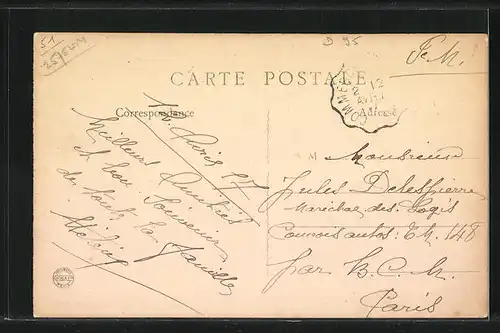 51
25/5414
D 95
F.M.
CARTE POSTALE
Correspondance
Adresse
COMMER
2 12
Paris 17
Meilleures Amitiés
et bon Souvenir
de toute la famille
M Monsieur
Jules Delespierre
Maréchal des Logis
Convois autos: T.M. 148
par B.C.M.
Paris